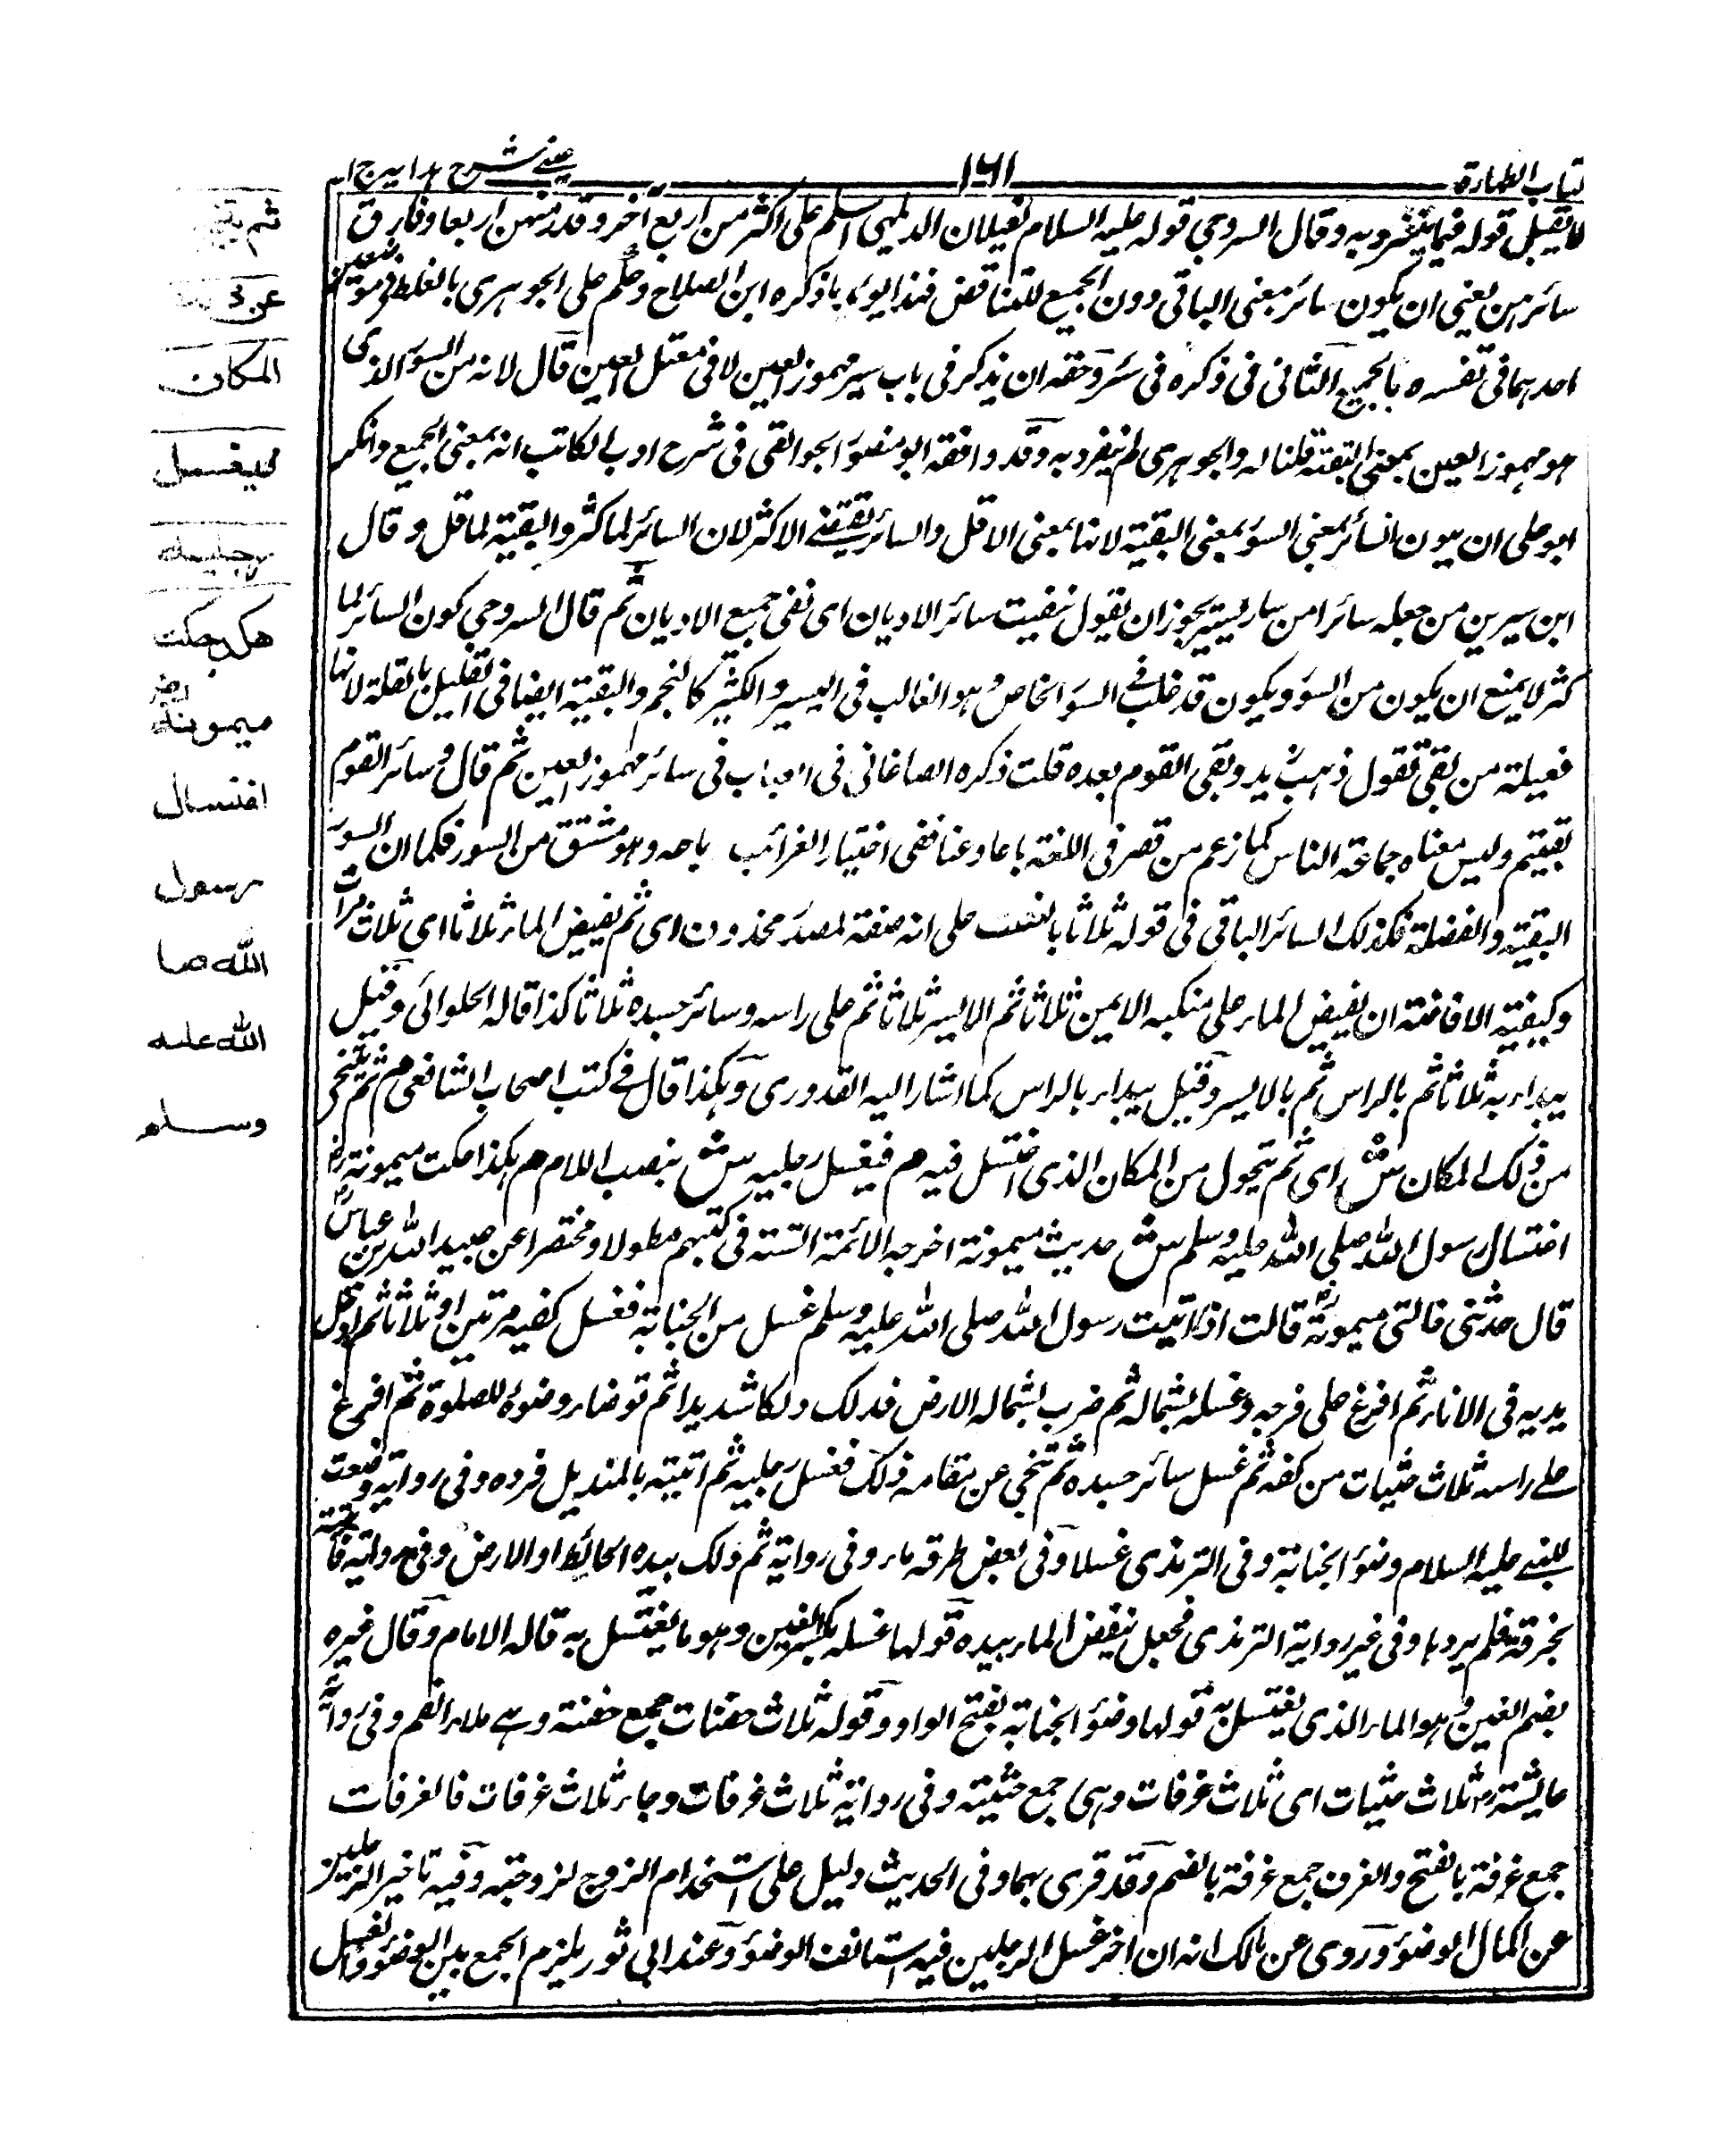 كتاب الطهارة ١٦١ عيني شرح هداية ج ١
لا يقبل قوله فيما يتفرد به وقال السروجي قوله عليه السلام لغيلان الديلمي اسلم على اكثر من اربع اختر وقدمنهن اربعا وفارق
سائرهن يعني ان يكون سائر معنى الباقي دون الجميع للتناقض فهذا يؤيد ما ذكره ابن الصلاح وحكم على الجوهري بالغلط في موضعين
احدهما في تفسيره بالجميع الثاني في ذكره في سير وحقه ان يذكر في باب سير مهموز العين لا في معتل العين قال لانه من السؤر الذي
هو مهموز العين بمعنى البقية قلنا له والجوهري لم ينفرد به وقد وافقه ابو منصور الجواليقي في شرح ادب الكاتب انه بمعنى الجميع وانكر
ابو علي ان يكون السائر بمعنى السؤر بمعنى البقية لانها بمعنى الاقل والسائر يقتضي الاكثر لان السائر لما كثر والبقية لما قل وقال
ابن سيرين من جعله سائرا من سار يسير يجوز ان يقول نفيت سائر الاديان اى نفى جميع الاديان ثم قال السروجي كون السائر لما
كثر لا يمنع ان يكون من السؤر ويكون قد غلب في السؤر الخاص وهو الغالب في اليسير والكثير كالنجم والبقية ايضا في القليل بالقلة لانها
فعيلة من بقي تقول ذهب زيد وبقى القوم بعده قلت ذكره الصاغاني في العباب في سائر مهموز العين ثم قال وسائر القوم
بقيتهم وليس معناه جماعة الناس كما زعم من قصر في اللغة باعه وعنا ففي اختيار الغرائب باحه وهو مشتق من السور فكما ان السور
البقية والفضلة فكذلك السائر الباقي في قوله ثلاثا بالنصب على انه صفة لمصدر محذوف اى ثم يفيض الماء ثلاثا اى ثلاث مرات
وكيفية الافاضة ان يفيض الماء على منكبه الايمن ثلاثا ثم الايسر ثلاثا ثم على راسه وسائر جسده ثلاثا كذا قاله الحلوائي وقيل
يبداء به ثلاثا ثم بالراس ثم بالايسر وقيل يبداء بالراس كما اشار اليه القدوري وهكذا قال في كتب اصحاب الشافعى م ثم يتنحى
من ذلك المكان ش اى ثم يتحول من المكان الذى اغتسل فيه م فيغسل رجليه ش بنصب اللام م هكذا حكت ميمونة رض
اغتسال رسول الله صلى الله عليه وسلم ش حديث ميمونة اخرجه الائمة الستة في كتبهم مطولا ومختصرا عن عبيد الله بن عباس
قال حدثتني خالتي ميمونة رض قالت ادنيت رسول الله صلى الله عليه وسلم غسل من الجنابة فغسل كفيه مرتين او ثلاثا ثم ادخل
يديه في الاناء ثم افرغ على فرجه وغسله بشماله ثم ضرب بشماله الارض فدلك دلكا شديدا ثم توضاء وضوءه للصلوة ثم افرغ
على راسه ثلاث حثيات من كفه ثم غسل سائر جسده ثم تنحى عن مقامه ذلك فغسل رجليه ثم اتيته بالمنديل فرده وفي رواية وضعت
للنبي عليه السلام وضوء الجنابة وفي الترمذي غسلا وفي بعض طرقه ماء وفي رواية ثم دلك بيده الحائط او الارض وفي رواية فاتيته
بخرقة فلم يردها وفي غير رواية الترمذي فجعل ينفض الماء بيده قولها غسله بكسر الغين وهو ما يغتسل به قاله الامام وقال غيره
بضم الغين وهو الماء الذي يغتسل به قولها وضوء الجنابة بفتح الواو وقوله ثلاث حفنات جمع حفنة وهى ملاء الفم وفي رواية
عايشة رض ثلاث حثيات اى ثلاث غرفات وهى جمع حثية وفي رواية ثلاث غرفات وجاء ثلاث غرفات فالغرفات
جمع غرفة بالفتح والغرف جمع غرفة بالضم وقد قرى بهما وفي الحديث دليل على استخدام الزوج لزوجته وفيه تاخير الرجلين
عن اكمال الوضوء وروى عن مالك انه ان اخر غسل الرجلين فيه استانف الوضوء وعند ابى ثور يلزم الجمع بين الوضوء والغسل
ثم يتنحى
عن ذلك
المكان
فيغسل
رجليه
هكذا حكت
ميمونة رض
اغتسال
رسول
الله صلى
الله عليه
وسلم